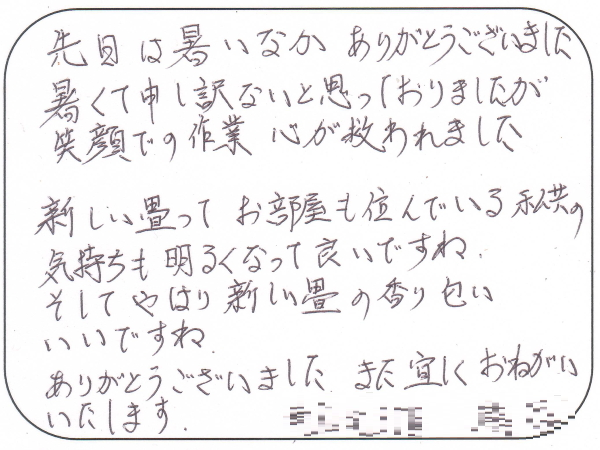 先日は暑いなか ありがとうございました
暑くて申し訳ないと思っておりましたが
笑顔での作業 心が救われました
新しい畳って お部屋も住んでいる私共の
気持ちも明るくなって良いですね.
そしてやはり新しい畳の香り匂い
いいですね.
ありがとうございました また宜しくおねがい
いたします.